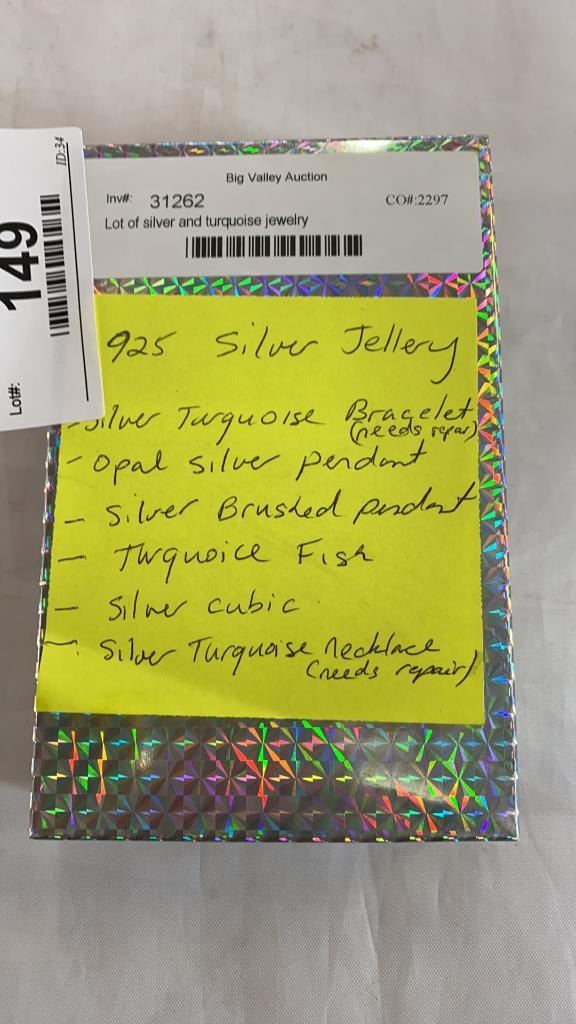 Big Valley Auction
Inv#: 31262 CO#:2297
Lot of silver and turquoise jewelry
ID:34
149
Lot#:
925 Silver Jellery
- Silver Turquoise Bracelet
(needs repair)
- Opal silver pendant
- Silver Brushed pendant
- Turquoice Fish
- Silver cubic
- Silver Turquoise necklace
(needs repair)